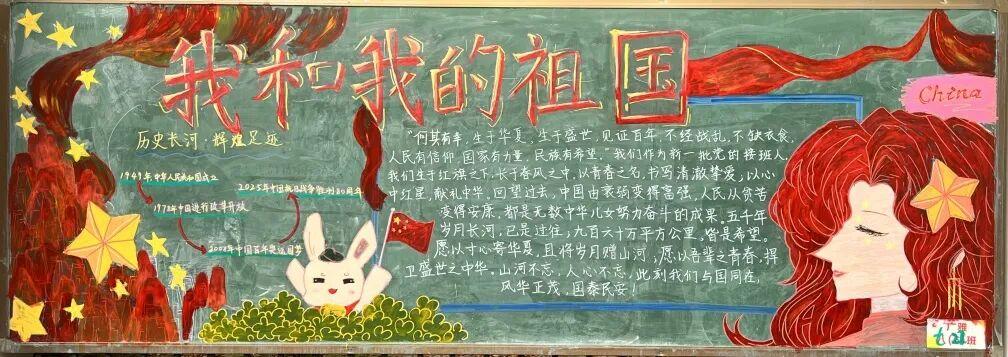 我和我的祖国
China
历史长河·辉煌足迹
1949年中华人民共和国成立
2025年中国抗日战争胜利80周年
1978年中国进行改革开放
2008年中国百年奥运圆梦
"何其有幸,生于华夏,生于盛世,见证百年,不经战乱,不缺衣食,
人民有信仰,国家有力量,民族有希望。"我们作为新一批党的接班人,
我们生于红旗之下,长于春风之中,以青春之名,书写清澈挚爱,以心
中红星,献礼中华。回望过去,中国由衰弱变得富强,人民从贫苦
变得安康,都是无数中华儿女努力奋斗的成果。五千年
岁月长河,已是过往;九百六十万平方公里,皆是希望。
愿以寸心寄华夏,且将岁月赠山河;愿以吾辈之青春,捍
卫盛世之中华。山河不忘,人心不忘,此刻我们与国同在,
风华正茂,国泰民安!
广雅
班